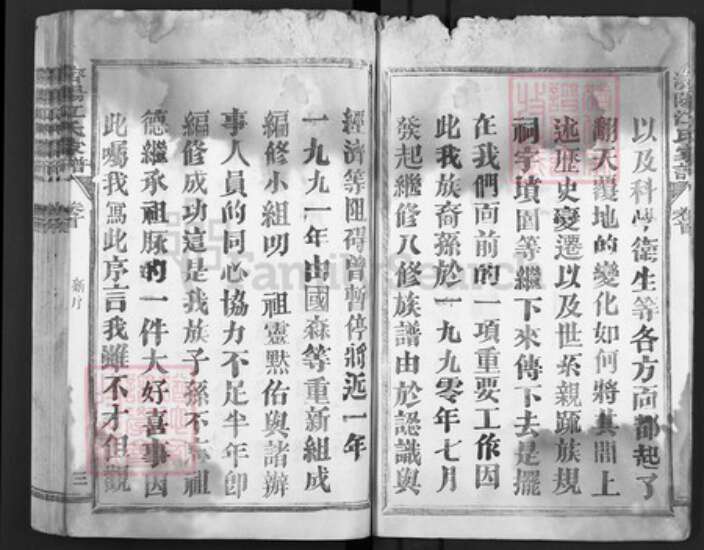 以及科學衛生等各方面都起了
翻天覆地的變化如何將其間上
述歷史變遷以及世系親疏族規
祠宇墳圖等繼下來傳下去是擺
在我們面前的一項重要工作因
此我族裔孫於一九九零年七月
發起繼修八修族譜由於認識與
經濟等阻碍曾暫停將近一年
一九九一年由國森等重新組成
編修小組叨 祖靈黙佑與諸辦
事人員的同心協力不足半年即
編修成功這是我族子孫不忘祖
德繼承祖脉的一件大好喜事因
此囑我寫此序言我雖不才但觀
濟陽江氏家譜
卷首
新序
三
FamilySearch